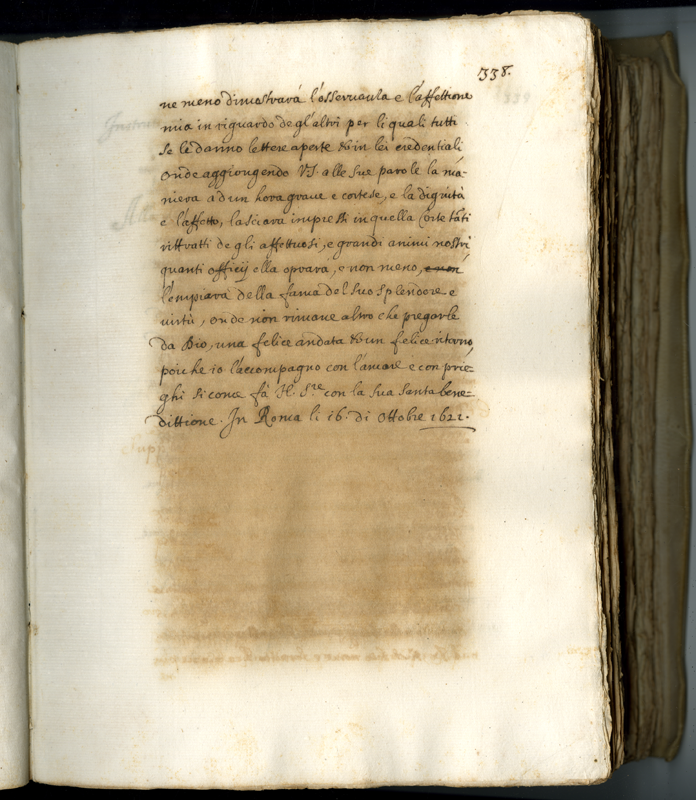 338.
ne meno dimostrarà l'osseruanza e l'affettione
mia in riguardo degl'altri per li quali tutti
se le danno lettere aperte et in lei credentiali
onde aggiongendo VS. alle sue parole la ma-
niera ad un hora graue e cortese, e la dignità
e l'affetto, lasciarà impressi in quella Corte tāti
rittratti de gli affettuosi, e grandi animi nostri
quanti officij ella oprarà, e non meno,
l'empiarà della fama del suo splendore e
uirtù, onde non rimane altro che pregarle
da Dio, una felice andata et un felice ritorno,
poiche io l'accompagno con l'amare e con prie-
ghi si come fà N. Sre. con la sua santa bene-
dittione. In Roma li 16. di Ottobre 1621.